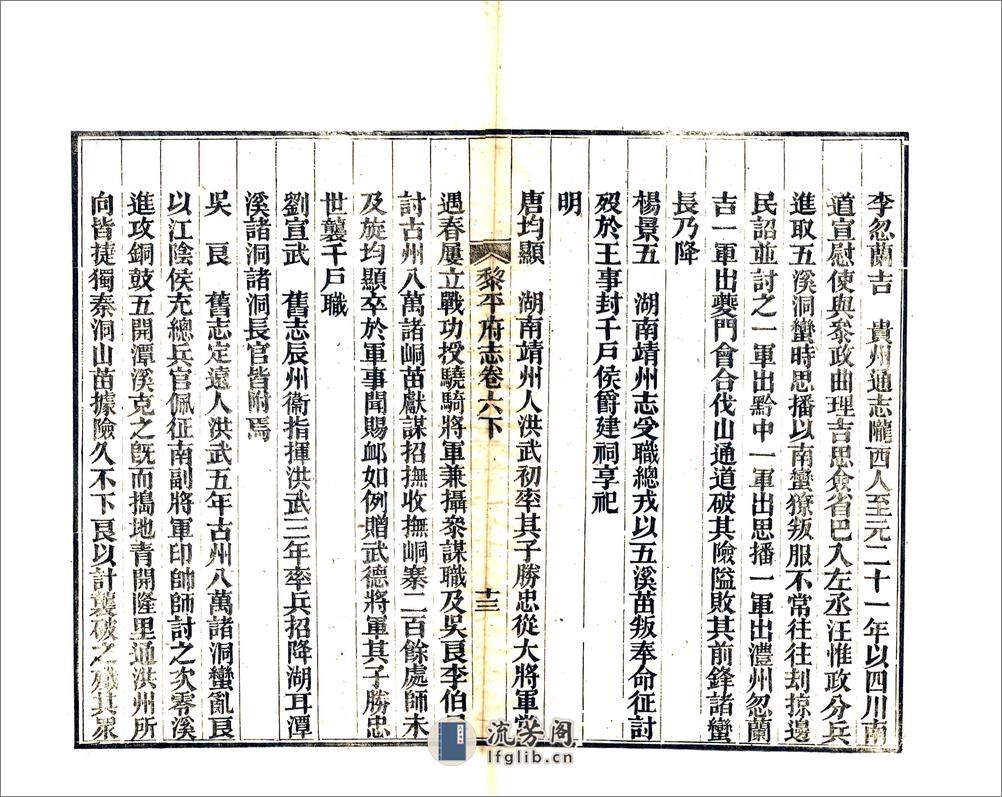 李忽蘭吉　貴州通志隴西人至元二十一年以四川南
道宣慰使與參政曲理吉思僉省巴入左丞汪惟政分兵
進取五溪洞蠻時思播以南蠻獠叛服不常往往刦掠邊
民詔並討之一軍出黔中一軍出思播一軍出澧州忽蘭
吉一軍出夔門會合伐山通道破其險隘敗其前鋒諸蠻
長乃降
楊景五　湖南靖州志受職總戎以五溪苗叛奉命征討
歿於王事封千戸侯爵建祠享祀
明
唐均顯　湖南靖州人洪武初率其子勝忠從大將軍常
黎平府志卷六下　十三
遇春屢立戰功授驍騎將軍兼攝參謀職及吳良李伯
討古州八萬諸峒苗獻謀招撫收撫峒寨二百餘處師未
及旋均顯卒於軍事聞賜䘏如例贈武德將軍其子勝忠
世襲千戸職
劉宣武　舊志辰州衞指揮洪武三年率兵招降湖耳潭
溪諸洞諸洞長官皆附焉
吳　良　舊志定遠人洪武五年古州八萬諸洞蠻亂良
以江陰侯充總兵官佩征南副將軍印帥師討之次零溪
進攻銅鼓五開潭溪克之旣而搗地青開隆里通洪州所
向皆捷獨秦洞山苗據險久不下良以計襲破之殲其眾
流芳阁
lfglib.cn